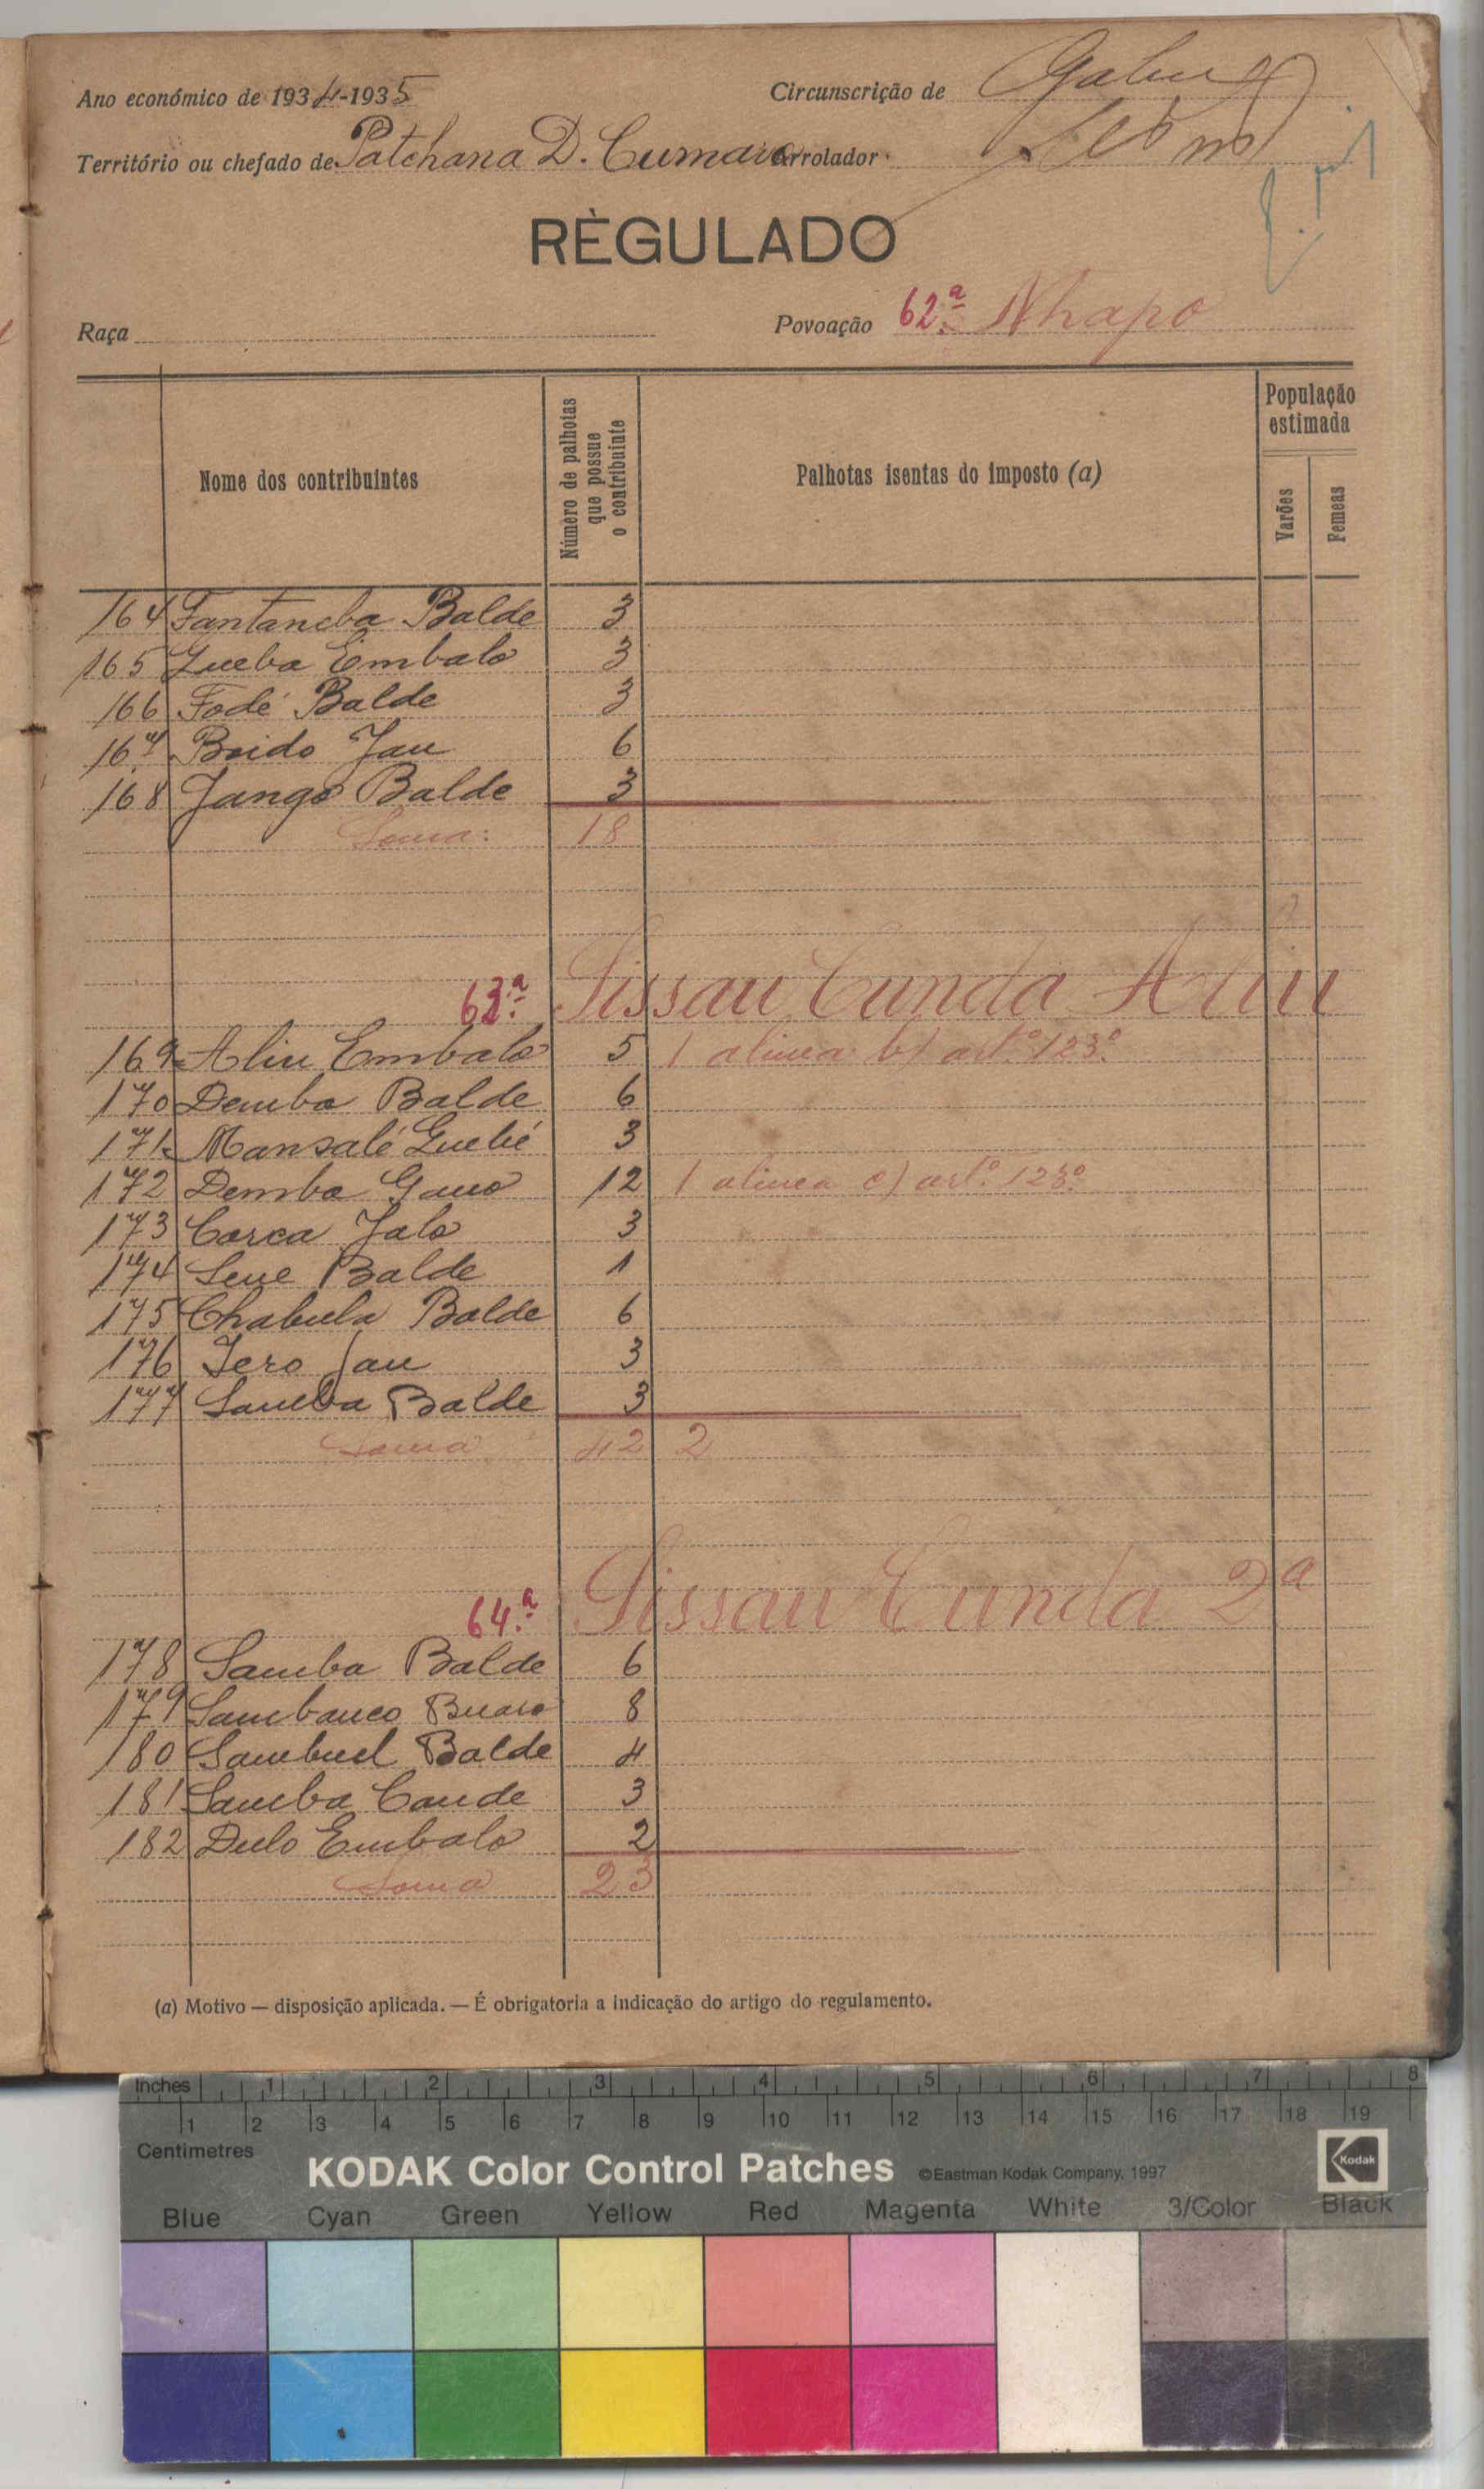 Ano económico de 1934-1935 Circunscrição de Gabu
Território ou chefado de Patchana D. Cumara Arrolador
RÈGULADO
Raça Povoação 62.ª Nhapo
Nome dos contribuintes Número de palhotas que possue o contribuinte Palhotas isentas do imposto (a) População estimada Varões Femeas
164 Fantancba Balde 3
165 Gueba Embalo 3
166 Fodé Balde 3
167 Boido Jau 6
168 Jango Balde 3
Soma: 18
63.ª Sissau Cunda Aliu
169 Aliu Embalo 5 1 alinea b) art.º 123.º
170 Demba Balde 6
171 Mansalé Guebé 3
172 Demba Gano 12 1 alinea c) art.º 123.º
173 Corca Jalo 3
174 Seue Balde 1
175 Chabula Balde 6
176 Iero Jau 3
177 Samba Balde 3
Soma 42 2
64.ª Sissau Cunda 2ª
178 Samba Balde 6
179 Sambanco Buaro 8
180 Sambuel Balde 4
181 Samba Cande 3
182 Dulo Embalo 2
Soma 23
(a) Motivo — disposição aplicada. — É obrigatoria a indicação do artigo do regulamento.
Inches 1 2 3 4 5 6 7 8
1 2 3 4 5 6 7 8 9 10 11 12 13 14 15 16 17 18 19
Centimetres
KODAK Color Control Patches ©Eastman Kodak Company, 1997 Kodak
Blue Cyan Green Yellow Red Magenta White 3/Color Black